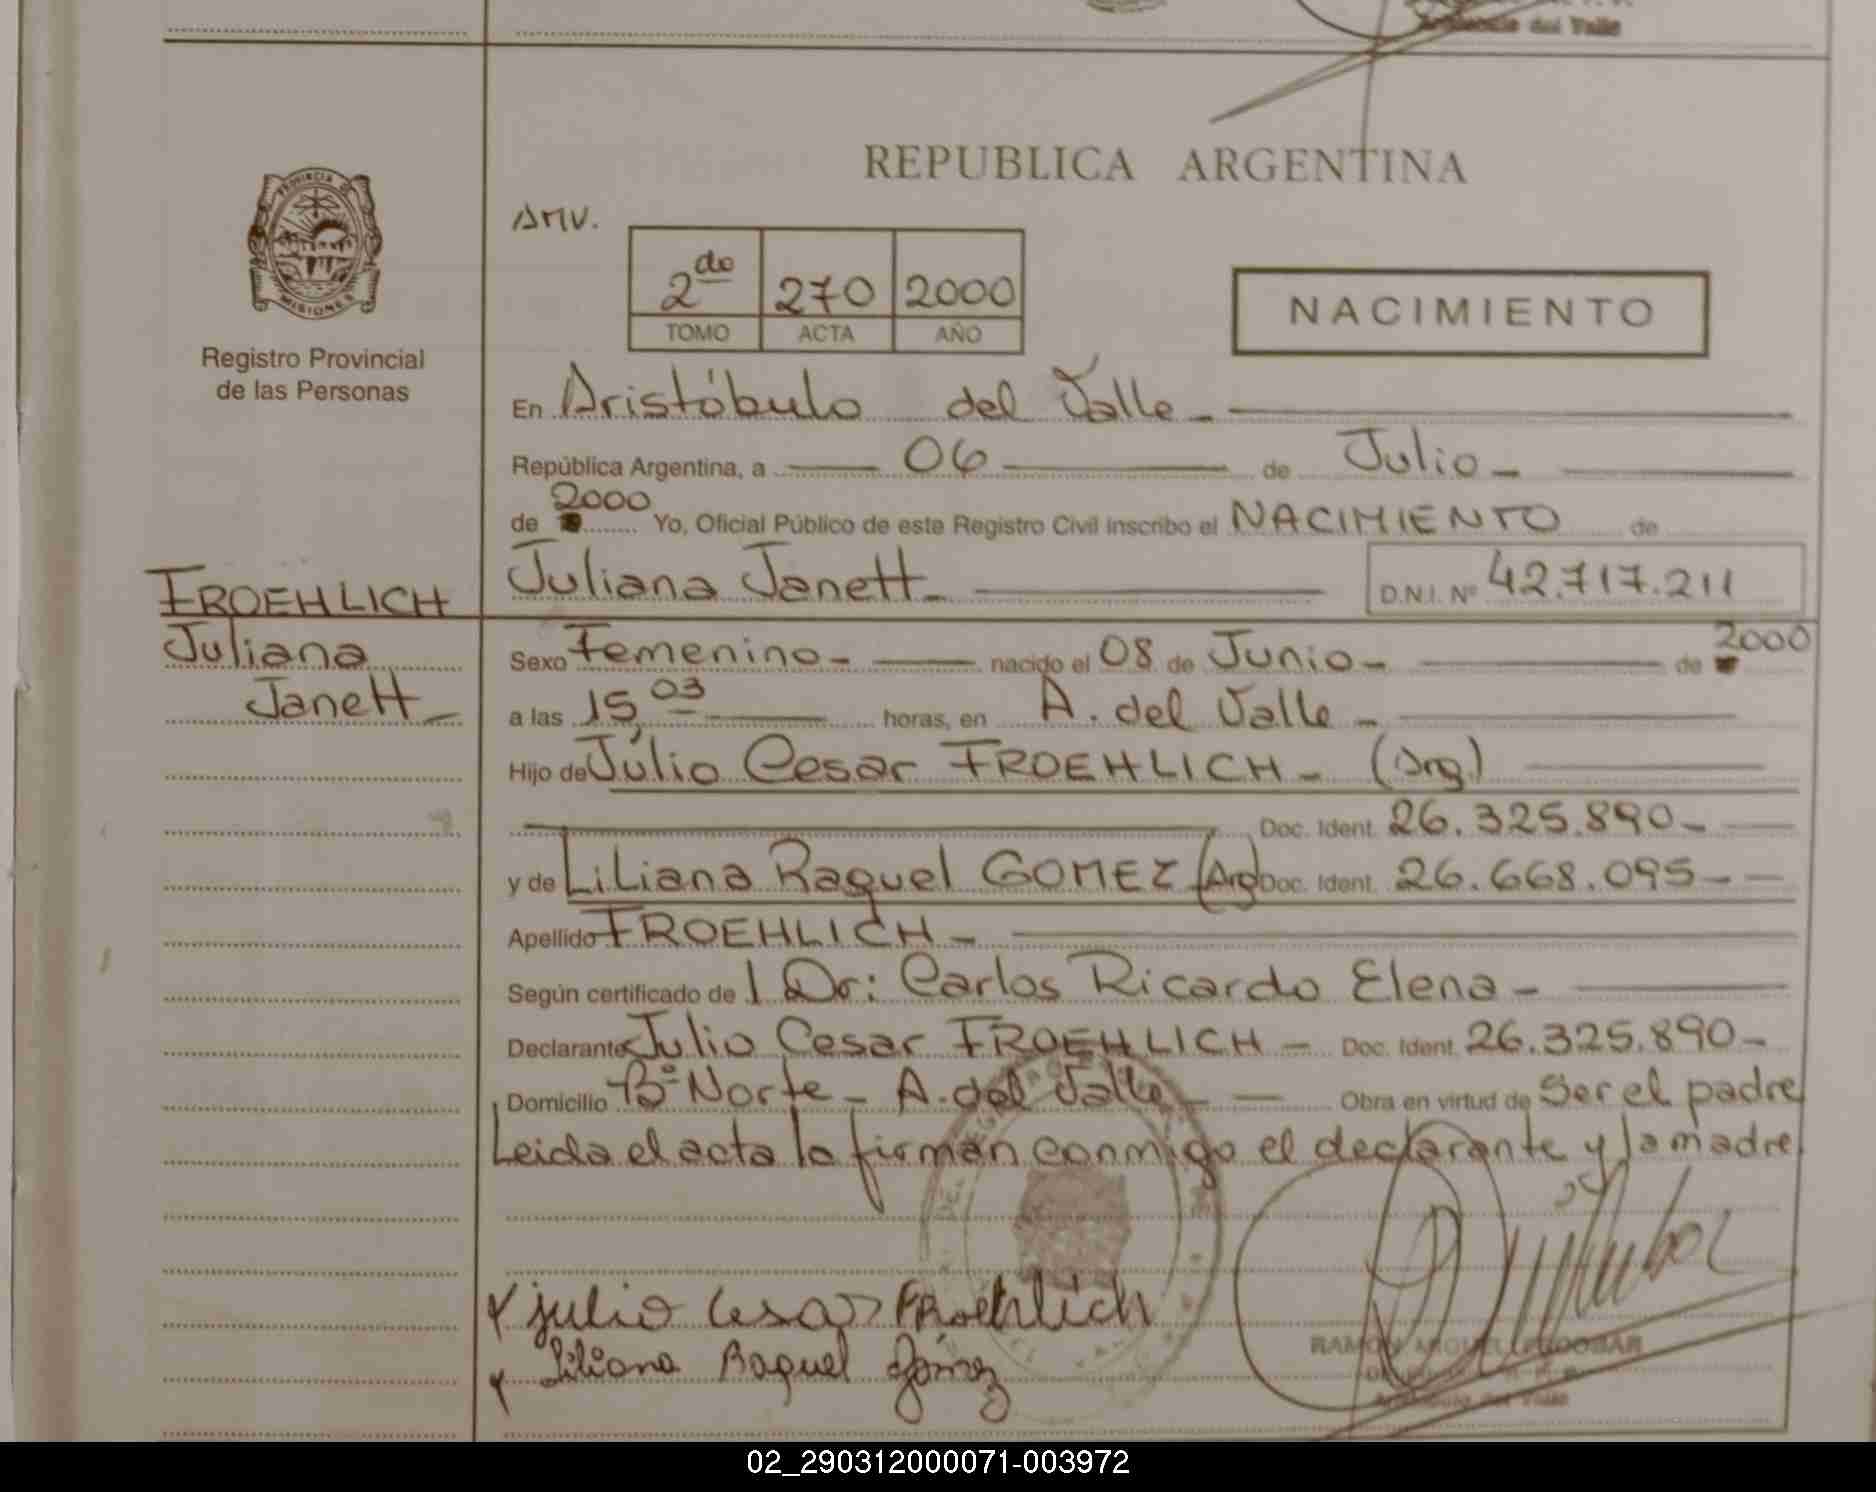 Aristóbulo del Valle
REPUBLICA ARGENTINA
PROVINCIA DE
MISIONES
Registro Provincial
de las Personas
AMV.
2do 270 2000
TOMO ACTA AÑO
NACIMIENTO
En Aristóbulo del Valle -
República Argentina, a 06 de Julio -
de 2000 Yo, Oficial Público de este Registro Civil inscribo el NACIMIENTO de
FROEHLICH Juliana Janett - D.N.I. Nº 42.717.211
Juliana
Janett -
Sexo Femenino - nacido el 08 de Junio - de 2000
a las 15,03 horas, en A. del Valle -
Hijo de Júlio Cesar FROEHLICH - (Arg.)
Doc. Ident. 26.325.890 -
y de Liliana Raquel GOMEZ (Arg) Doc. Ident. 26.668.095 -
Apellido FROEHLICH -
Según certificado de l Dr: Carlos Ricardo Elena -
Declarante Julio Cesar FROEHLICH - Doc. Ident. 26.325.890 -
Domicilio Bº Norte - A. del Valle - Obra en virtud de ser el padre
Leida el acta la firman conmigo el declarante y la madre
x julio Cesar FRoehlich
x Liliana Raquel Gómez
RAMON MIGUEL ESCOBAR
Aristóbulo del Valle
02_290312000071-003972